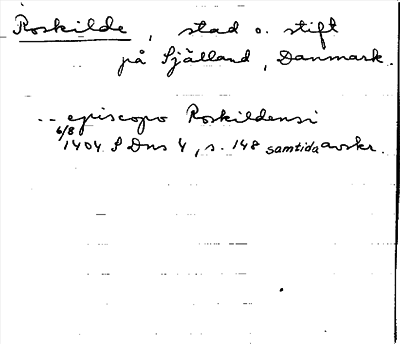 Roskilde, stad o. stift
på Själland, Danmark.
-- episcopo Roskildensi
6/8 1404 S Dns 4, s. 148 samtida avskr.